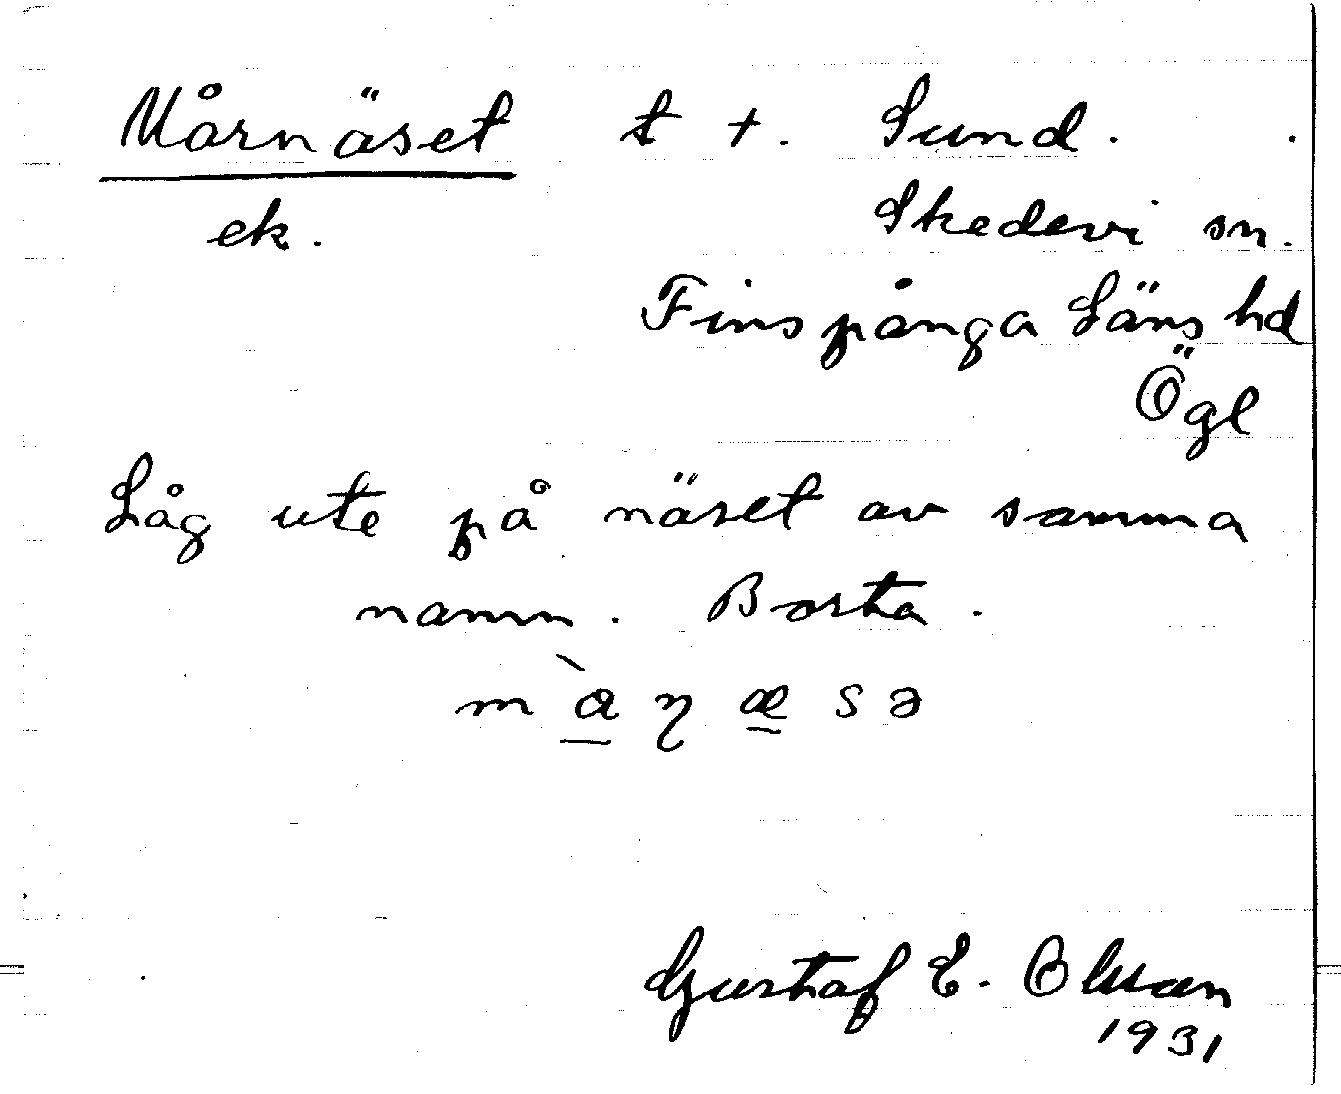 Mårnäset t +. Sund.
ek. Skedevi sn.
Finspånga Läns hd
Ögl
Låg ute på näset av samma
namn. Borta.
Gustaf E. Olsson
1931